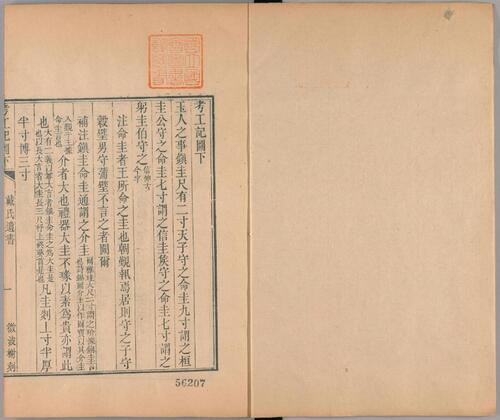 考工記圖下
玉人之事鎮圭尺有二寸天子守之命圭九寸謂之桓
圭公守之命圭七寸謂之信圭侯守之命圭七寸謂之
躬圭伯守之
注命圭者王所命之圭也朝覲執焉居則守之子守
穀璧男守蒲璧不言之者闕爾
補注鎮圭命圭通謂之介圭
介者大也禮器大圭不瑑以素為貴亦謂此
也
凡圭剡上寸半厚
半寸博三寸
考工記圖下
戴氏遺書
一
微波榭刻
56207